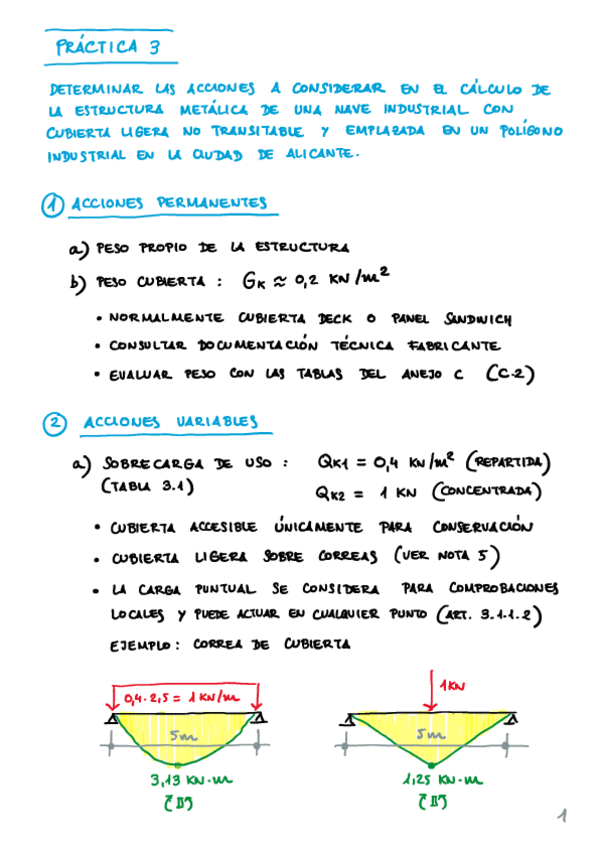 PRÁCTICA 3
DETERMINAR LAS ACCIONES A CONSIDERAR EN EL CÁLCULO DE
LA ESTRUCTURA METÁLICA DE UNA NAVE INDUSTRIAL CON
CUBIERTA LIGERA NO TRANSITABLE Y EMPLAZADA EN UN POLÍGONO
INDUSTRIAL EN LA CIUDAD DE ALICANTE.
1 ACCIONES PERMANENTES
a) PESO PROPIO DE LA ESTRUCTURA
b) PESO CUBIERTA : GK ≈ 0,2 KN/m²
• NORMALMENTE CUBIERTA DECK O PANEL SANDWICH
• CONSULTAR DOCUMENTACIÓN TÉCNICA FABRICANTE
• EVALUAR PESO CON LAS TABLAS DEL ANEJO C (C.2)
2 ACCIONES VARIABLES
a) SOBRECARGA DE USO : QK1 = 0,4 KN/m² (REPARTIDA)
(TABLA 3.1) QK2 = 1 KN (CONCENTRADA)
• CUBIERTA ACCESIBLE ÚNICAMENTE PARA CONSERVACIÓN
• CUBIERTA LIGERA SOBRE CORREAS (VER NOTA 5)
• LA CARGA PUNTUAL SE CONSIDERA PARA COMPROBACIONES
LOCALES Y PUEDE ACTUAR EN CUALQUIER PUNTO (ART. 3.1.1.2)
EJEMPLO : CORREA DE CUBIERTA
0,4·2,5 = 1 KN/m 1KN
5m 5m
3,13 KN·m 1,25 KN·m
1